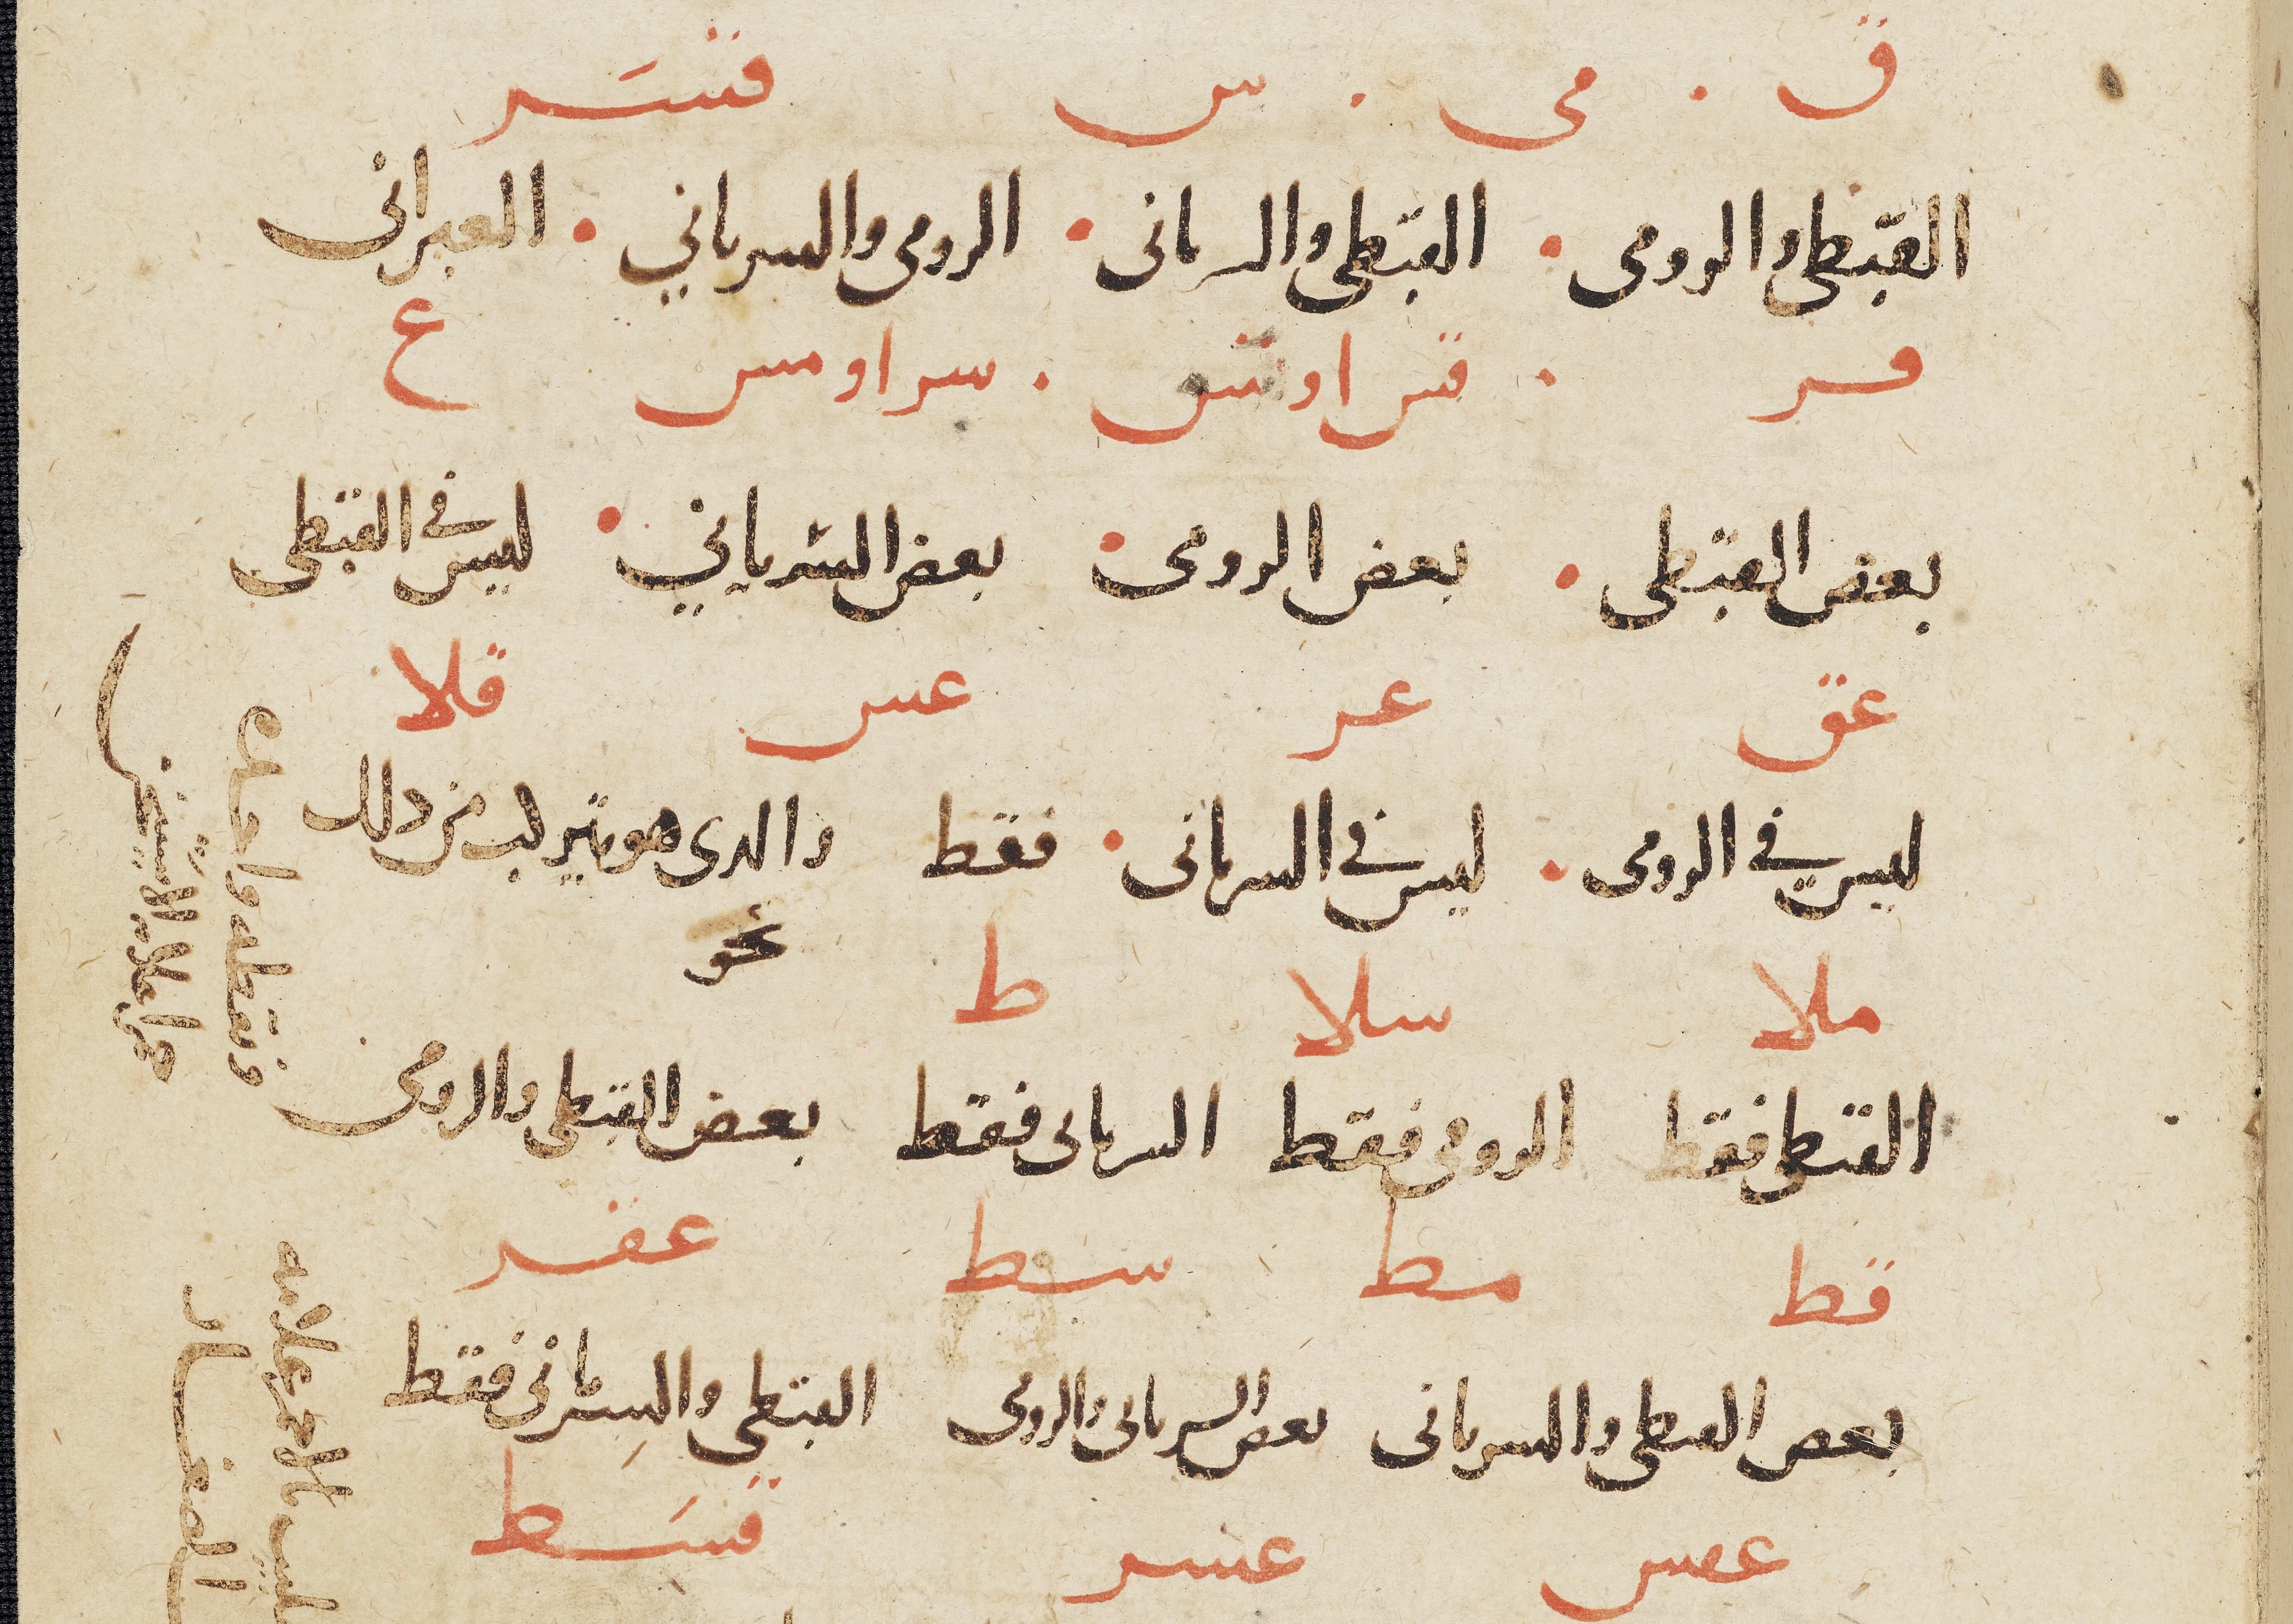 ق . مى . س قسر
القبطى والرومى . القبطى والسريانى . الرومى والسرياني . العبرانى
قر . قس او تس . سر او مس ع
بعض القبطى . بعض الرومى . بعض السرياني . ليس في القبطى
عق عر عس قلا
ليس في الرومى . ليس في السريانى . فقط والدى هو متركب من دلك
نحو
ملا سلا ط
القبطى فقط الرومى فقط السريانى فقط بعض القبطى والرومى
قط مط سط عقر
بعض القبطى والسريانى بعض السريانى والرومى القبطى والسريانى فقط
عقس عسر قسط
ونقطه واحده